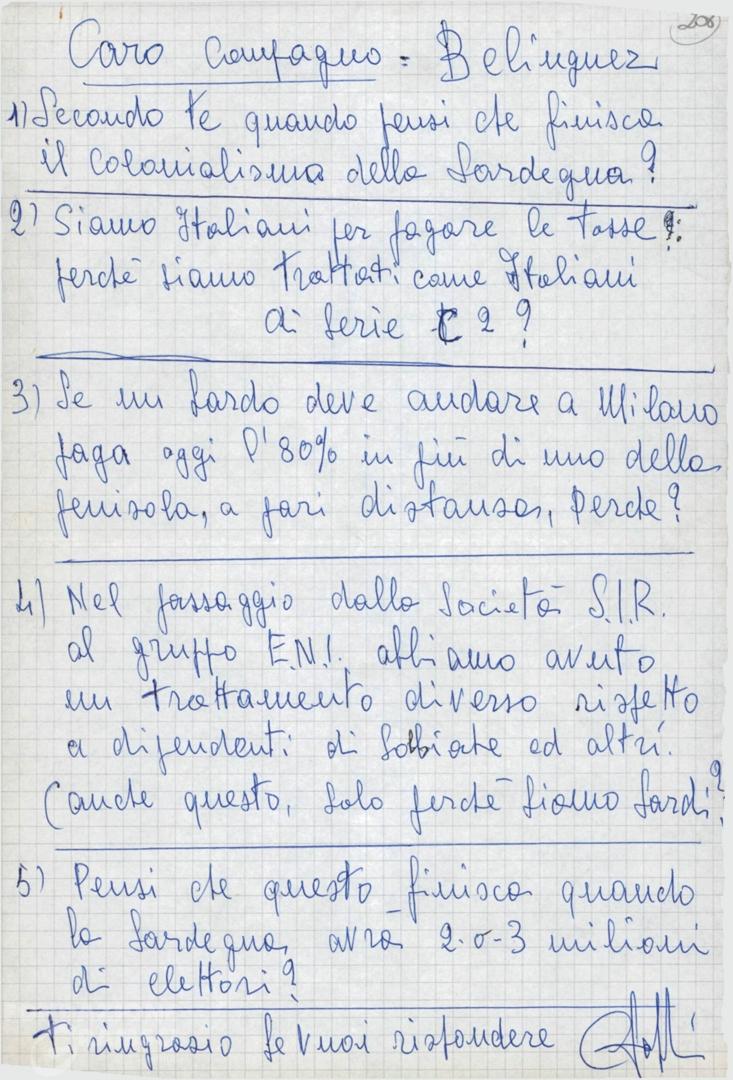 208
Caro compagno = Belinguer
1) Secondo te quando pensi che finisca
il colonialismo della Sardegna?
2) Siamo Italiani per pagare le tasse?:
perché siamo trattati come Italiani
di serie C 2?
3) Se un Sardo deve andare a Milano
paga oggi l'80% in più di uno della
penisola, a pari distanza, perche?
4) Nel passaggio dalla Società S.I.R.
al gruppo E.N.I. abbiamo avuto
un trattamento diverso rispetto
a dipendenti di Solbiate ed altri.
(anche questo, solo perchè siamo Sardi?
5) Pensi che questo finisca quando
la Sardegna, avrà 2-o-3 milioni
di elettori?
Ti ringrazio se vuoi rispondere